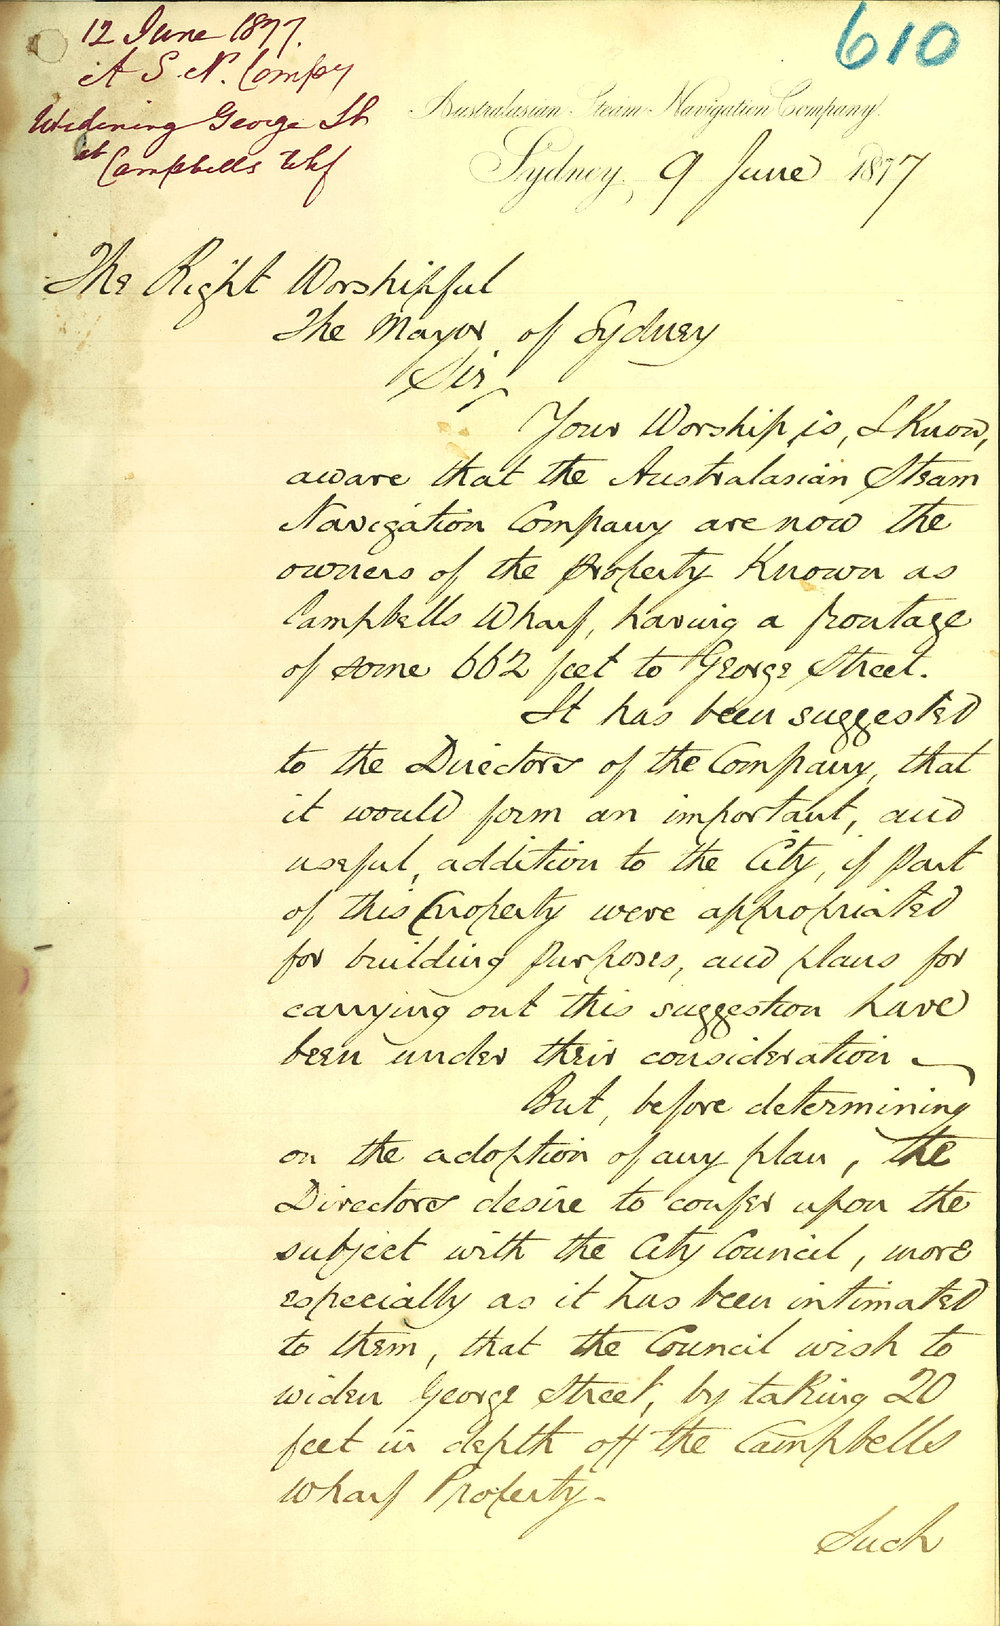 12 June 1877.
A S. N. Compy
Widening George St
at
Campbells Whf
610
Australasian Steam Navigation Company.
Sydney, 9 June 1877
The Right Worshipful
The Mayor of Sydney
Sir,
Your Worship is, I Know,
aware that the Australasian Steam
Navigation Company are now the
owners of the property Known as
Campbells Wharf, having a frontage
of some 662 feet to George Street.
It has been suggested
to the Directors of the Company, that
it would form an important, and
useful, addition to the City, if part
of this Property were appropriated
for building purposes, and plans for
carrying out this suggestion have
been under their consideration —
But, before determining
on the adoption of any plan, the
Directors desire to confer upon the
subject with the City Council, more
especially as it has been intimated
to them, that the Council wish to
widen George Street, by taking 20
feet in depth off the Campbells
Wharf Property -
Such